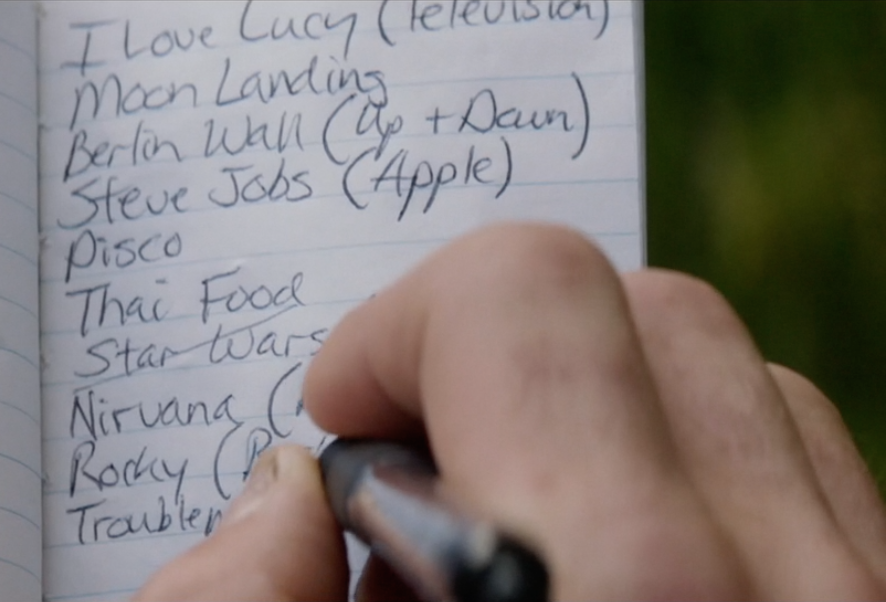 I Love Lucy (Television)
Moon Landing
Berlin Wall (Up + Down)
Steve Jobs (Apple)
Disco
Thai Food
Star Wars
Nirvana (
Rocky (